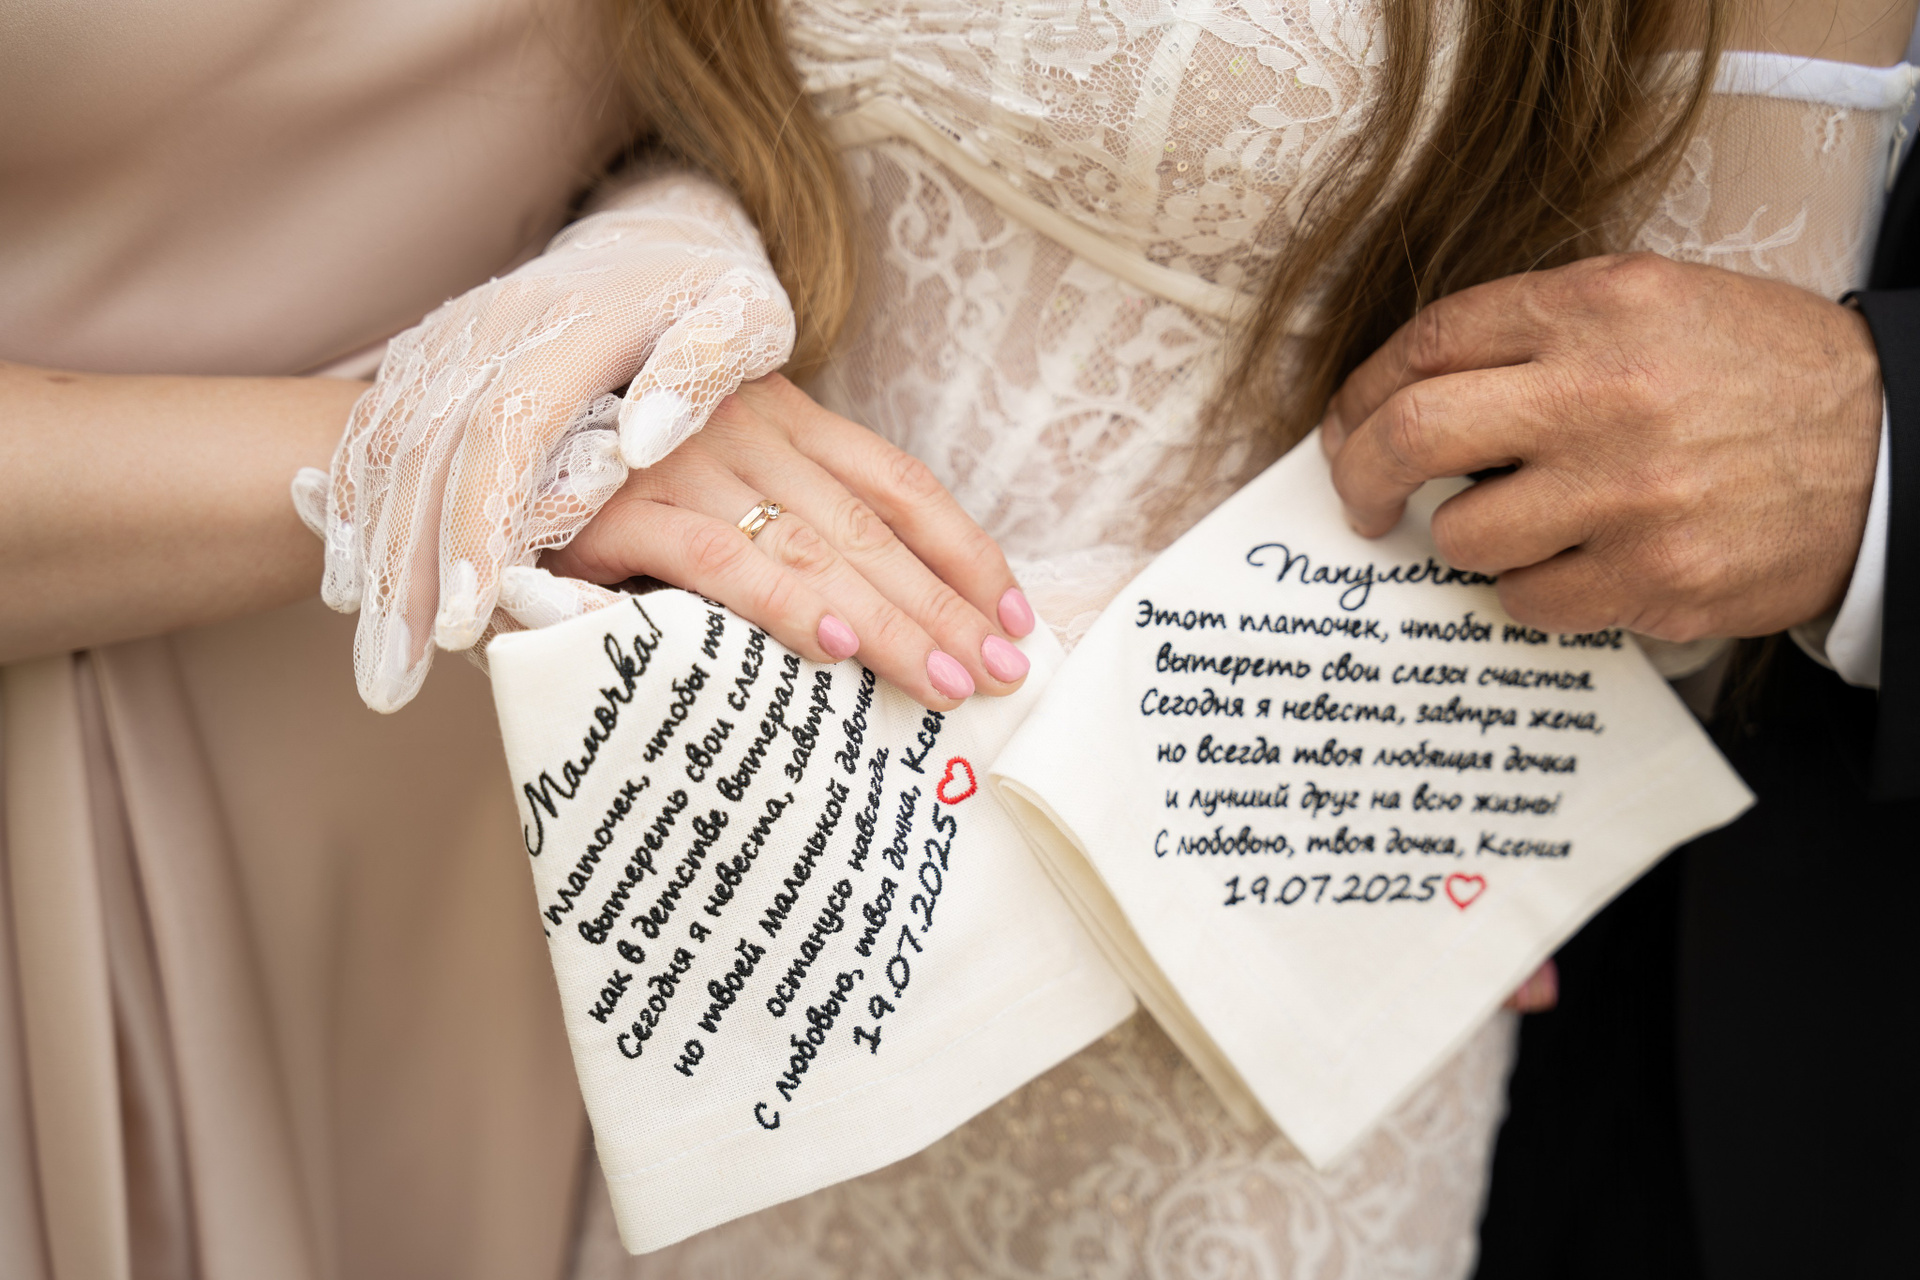 Мамочка!
платочек, чтобы ты
вытереть свои слезы
как в детстве вытерала
Сегодня я невеста, завтра
но твоей маленькой девочкой
останусь навсегда
С любовью, твоя дочка,
19.07.2025
Папулечка
Этот платочек, чтобы ты смог
вытереть свои слезы счастья
Сегодня я невеста, завтра жена,
но всегда твоя любящая дочка
и лучший друг на всю жизнь!
С любовью, твоя дочка, Ксения
19.07.2025